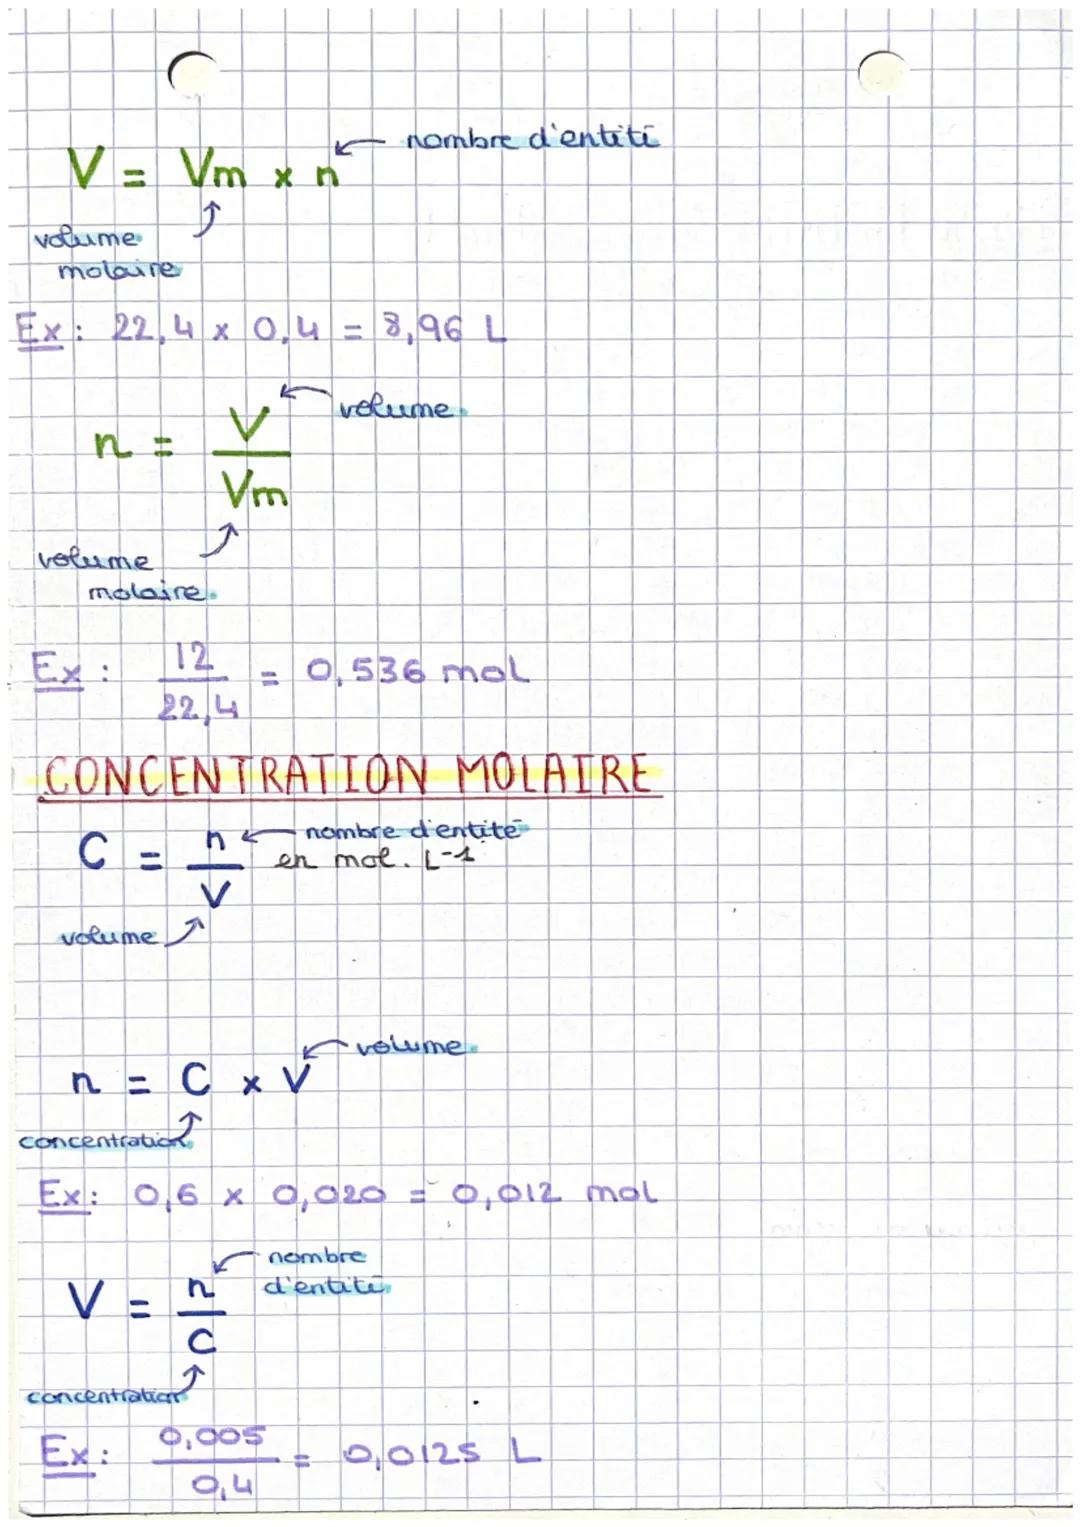 V = Vm x n ← nombre d'entité
volume
molaire
Ex : 22,4 x 0,4 = 8,96 L
n = V / Vm ← volume
volume
molaire
Ex : 12 / 22,4 = 0,536 mol
CONCENTRATION MOLAIRE
C = n / V ← nombre d'entité
en mol. L-1
volume
n = C x V ← volume
concentration
Ex : 0,6 x 0,020 = 0,012 mol
V = n / C ← nombre
d'entité
concentration
Ex : 0,005 / 0,4 = 0,0125 L